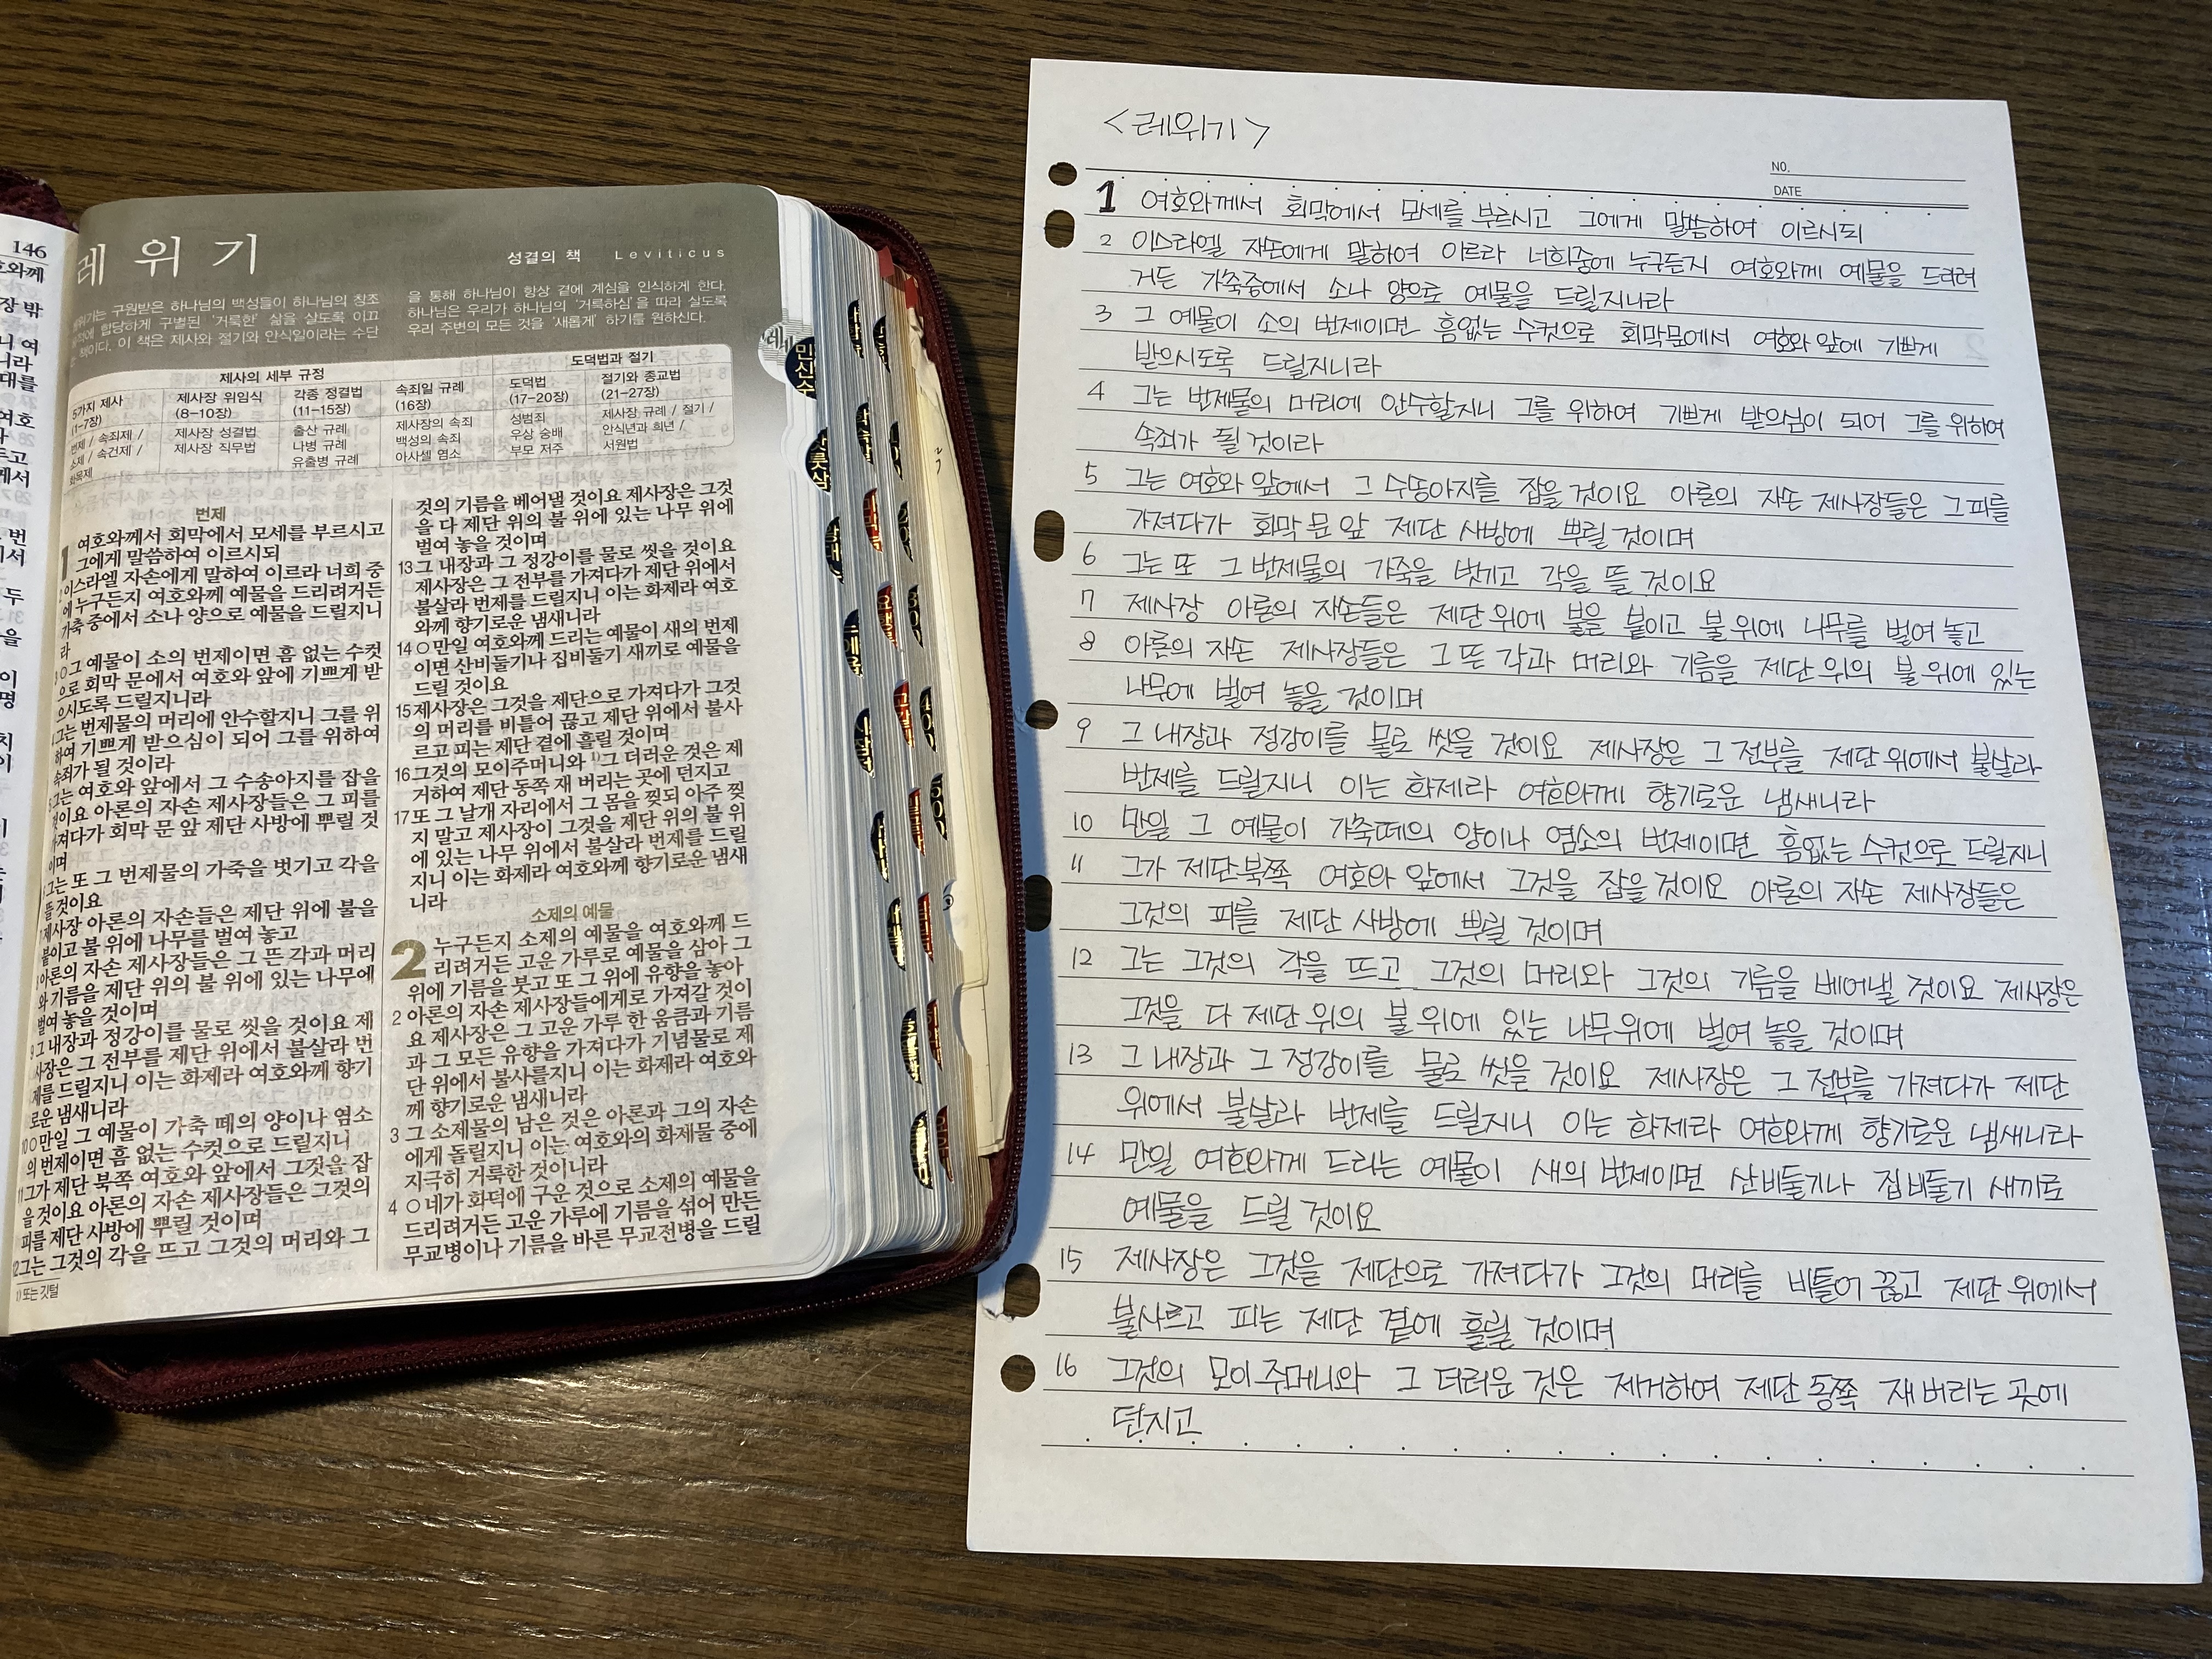 146
레 위 기
성결의 책 Leviticus
구원받은 하나님의 백성들이 하나님의 창조
합당하게 구별된 '거룩한' 삶을 살도록 이끄
책이다. 이 책은 제사와 절기와 안식일이라는 수단
을 통해 하나님이 항상 곁에 계심을 인식하게 한다.
하나님은 우리가 하나님의 '거룩하심'을 따라 살도록
우리 주변의 모든 것을 '새롭게' 하기를 원하신다.
제사의 세부 규정
도덕법과 절기
5가지 제사
(1-7장)
번제 / 속죄제 /
소제 / 속건제 /
화목제
제사장 위임식
(8-10장)
제사장 성결법
제사장 직무법
각종 정결법
(11-15장)
출산 규례
나병 규례
유출병 규례
속죄일 규례
(16장)
제사장의 속죄
백성의 속죄
아사셀 염소
도덕법
(17-20장)
성범죄
우상 숭배
부모 저주
절기와 종교법
(21-27장)
제사장 규례 / 절기 /
안식년과 희년 /
서원법
번제
1 여호와께서 회막에서 모세를 부르시고
그에게 말씀하여 이르시되
이스라엘 자손에게 말하여 이르라 너희 중
에 누구든지 여호와께 예물을 드리려거든
가축 중에서 소나 양으로 예물을 드릴지니
라
3 ○그 예물이 소의 번제이면 흠 없는 수컷
으로 회막 문에서 여호와 앞에 기쁘게 받
으시도록 드릴지니라
그는 번제물의 머리에 안수할지니 그를 위
하여 기쁘게 받으심이 되어 그를 위하여
속죄가 될 것이라
그는 여호와 앞에서 그 수송아지를 잡을
것이요 아론의 자손 제사장들은 그 피를
가져다가 회막 문 앞 제단 사방에 뿌릴 것
이며
그는 또 그 번제물의 가죽을 벗기고 각을
뜰 것이요
제사장 아론의 자손들은 제단 위에 불을
붙이고 불 위에 나무를 벌여 놓고
아론의 자손 제사장들은 그 뜬 각과 머리
와 기름을 제단 위의 불 위에 있는 나무에
벌여 놓을 것이며
9 그 내장과 정강이를 물로 씻을 것이요 제
사장은 그 전부를 제단 위에서 불살라 번
제를 드릴지니 이는 화제라 여호와께 향기
로운 냄새니라
10 ○만일 그 예물이 가축 떼의 양이나 염소
의 번제이면 흠 없는 수컷으로 드릴지니
11 그가 제단 북쪽 여호와 앞에서 그것을 잡
을 것이요 아론의 자손 제사장들은 그것의
피를 제단 사방에 뿌릴 것이며
12 그는 그것의 각을 뜨고 그것의 머리와 그
1) 또는 깃털
것의 기름을 베어낼 것이요 제사장은 그것
을 다 제단 위의 불 위에 있는 나무 위에
벌여 놓을 것이며
13 그 내장과 그 정강이를 물로 씻을 것이요
제사장은 그 전부를 가져다가 제단 위에서
불살라 번제를 드릴지니 이는 화제라 여호
와께 향기로운 냄새니라
14 ○만일 여호와께 드리는 예물이 새의 번제
이면 산비둘기나 집비둘기 새끼로 예물을
드릴 것이요
15 제사장은 그것을 제단으로 가져다가 그것
의 머리를 비틀어 끊고 제단 위에서 불사
르고 피는 제단 곁에 흘릴 것이며
16 그것의 모이주머니와 1)그 더러운 것은 제
거하여 제단 동쪽 재 버리는 곳에 던지고
17 또 그 날개 자리에서 그 몸을 찢되 아주 찢
지 말고 제사장이 그것을 제단 위의 불 위
에 있는 나무 위에서 불살라 번제를 드릴
지니 이는 화제라 여호와께 향기로운 냄새
니라
소제의 예물
2 누구든지 소제의 예물을 여호와께 드
리려거든 고운 가루로 예물을 삼아 그
위에 기름을 붓고 또 그 위에 유향을 놓아
2 아론의 자손 제사장들에게로 가져갈 것이
요 제사장은 그 고운 가루 한 움큼과 기름
과 그 모든 유향을 가져다가 기념물로 제
단 위에서 불사를지니 이는 화제라 여호와
께 향기로운 냄새니라
3 그 소제물의 남은 것은 아론과 그의 자손
에게 돌릴지니 이는 여호와의 화제물 중에
지극히 거룩한 것이니라
4 ○네가 화덕에 구운 것으로 소제의 예물을
드리려거든 고운 가루에 기름을 섞어 만든
무교병이나 기름을 바른 무교전병을 드릴
<레위기>
NO.
DATE
1 여호와께서 회막에서 모세를 부르시고 그에게 말씀하여 이르시되
2 이스라엘 자손에게 말하여 이르라 너희중에 누구든지 여호와께 예물을 드려려
거든 가축중에서 소나 양으로 예물을 드릴지니라
3 그 예물이 소의 번제이면 흠없는 수컷으로 회막문에서 여호와 앞에 기쁘게
받으시도록 드릴지니라
4 그는 번제물의 머리에 안수할지니 그를 위하여 기쁘게 받으심이 되어 그를 위하여
속죄가 될 것이라
5 그는 여호와 앞에서 그 수송아지를 잡을 것이요 아론의 자손 제사장들은 그 피를
가져다가 회막 문 앞 제단 사방에 뿌릴 것이며
6 그는 또 그 번제물의 가죽을 벗기고 각을 뜰 것이요
7 제사장 아론의 자손들은 제단 위에 불을 붙이고 불 위에 나무를 벌여 놓고
8 아론의 자손 제사장들은 그 뜬 각과 머리와 기름을 제단 위의 불 위에 있는
나무에 벌여 놓을 것이며
9 그 내장과 정강이를 물로 씻을 것이요 제사장은 그 전부를 제단 위에서 불살라
번제를 드릴지니 이는 화제라 여호와께 향기로운 냄새니라
10 만일 그 예물이 가축떼의 양이나 염소의 번제이면 흠없는 수컷으로 드릴지니
11 그가 제단 북쪽 여호와 앞에서 그것을 잡을 것이요 아론의 자손 제사장들은
그것의 피를 제단 사방에 뿌릴 것이며
12 그는 그것의 각을 뜨고 그것의 머리와 그것의 기름을 베어낼 것이요 제사장은
그것을 다 제단 위의 불 위에 있는 나무위에 벌여 놓을 것이며
13 그 내장과 그 정강이를 물로 씻을 것이요 제사장은 그 전부를 가져다가 제단
위에서 불살라 번제를 드릴지니 이는 화제라 여호와께 향기로운 냄새니라
14 만일 여호와께 드리는 예물이 새의 번제이면 산비둘기나 집비둘기 새끼로
예물을 드릴 것이요
15 제사장은 그것을 제단으로 가져다가 그것의 머리를 비틀어 끊고 제단 위에서
불사르고 피는 제단 곁에 흘릴 것이며
16 그것의 모이주머니와 그 더러운 것은 제거하여 제단 동쪽 재 버리는 곳에
던지고